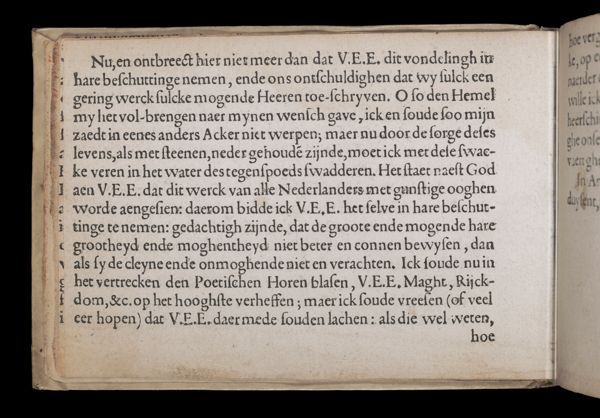 Nu, en ontbreect hier niet meer dan dat V.E.E. dit vondelingh in
hare beſchuttinge nemen, ende ons ontſchuldighen dat wy ſulck een
gering werck ſulcke mogende Heeren toe-ſchryven. O ſo den Hemel
my het vol-brengen naer mynen wenſch gave, ick en ſoude ſoo mijn
zaedt in eenes anders Acker niet werpen; maer nu door de ſorge deſes
levens, als met ſteenen, neder gehoudē zijnde, moet ick met deſe ſwac-
ke veren in het water des tegenſpoeds ſwadderen. Het ſtaet naeſt God
aen V.E.E. dat dit werck van alle Nederlanders met gunſtige ooghen
worde aengeſien: daerom bidde ick V.E.E. het ſelve in hare beſchut-
tinge te nemen: gedachtigh zijnde, dat de groote ende mogende hare
grootheyd ende moghentheyd niet beter en connen bewyſen, dan
als ſy de cleyne ende onmoghende niet en verachten. Ick ſoude nu in
het vertrecken den Poetiſchen Horen blaſen, V.E.E. Maght, Rijck-
dom, &c. op het hooghſte verheffen; maer ick ſoude vreeſen (of veel
eer hopen) dat V.E.E. daer mede ſouden lachen: als die wel weten,
hoe
hoe verg
ke, op e
naerder
wille ick
heerſchi
ghe onſe
vaen ghe
In Ar
duyſent,